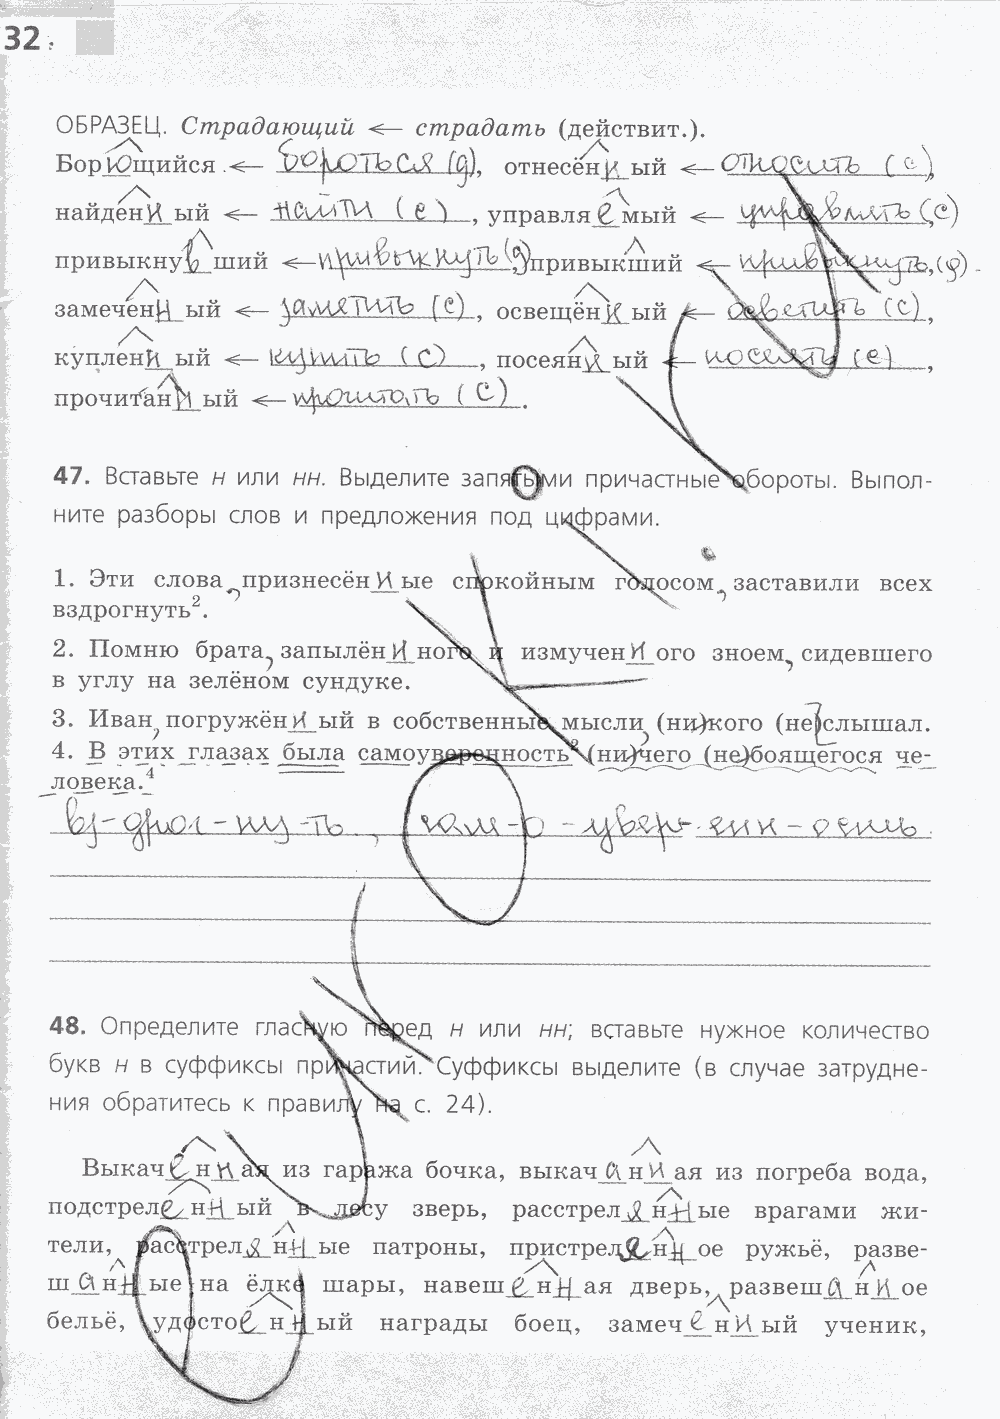 32
ОБРАЗЕЦ. Страдающий ← страдать (действит.).
Борющийся ← бороться (д), отнесённый ← относить (с),
найденный ← найти (с), управляемый ← управлять (с)
привыкнувший ← привыкнуть (д), привыкший ← привыкнуть, (д)
замеченный ← заметить (с), освещённый ← осветить (с),
купленный ← купить (с), посеянный ← посеять (с),
прочитанный ← прочитать (с).
47. Вставьте н или нн. Выделите запятыми причастные обороты. Выпол-
ните разборы слов и предложения под цифрами.
1. Эти слова, признесённые спокойным голосом, заставили всех
вздрогнуть².
2. Помню брата, запылённного и измученного зноем, сидевшего
в углу на зелёном сундуке.
3. Иван, погружённый в собственные мысли, (ни)кого (не)слышал.
4. В этих глазах была самоуверенность² (ни)чего (не)боящегося че-
ловека.⁴
вз-дрог-ну-ть, сам-о-увер-енн-ость.
48. Определите гласную перед н или нн; вставьте нужное количество
букв н в суффиксы причастий. Суффиксы выделите (в случае затрудне-
ния обратитесь к правилу на с. 24).
Выкаченная из гаража бочка, выкачанная из погреба вода,
подстреленный в лесу зверь, расстрелянные врагами жи-
тели, расстрелянные патроны, пристрелянное ружьё, разве-
шанные на ёлке шары, навешенная дверь, развешанное
бельё, удостоенный награды боец, замеченный ученик,